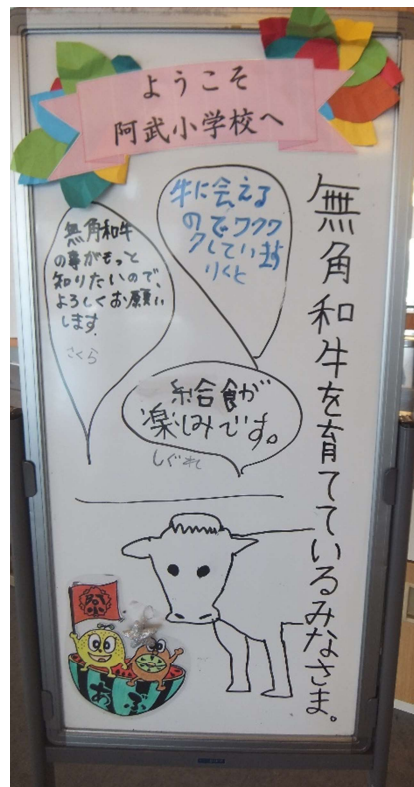 ようこそ
阿武小学校へ
無角和牛を育てているみなさま。
牛に会える
のでワクワ
クしています
りくと
無角和牛
の事がもっと
知りたいので、
よろしくお願い
します。
さくら
給食が
楽しみです。
しぐれ
あぶ